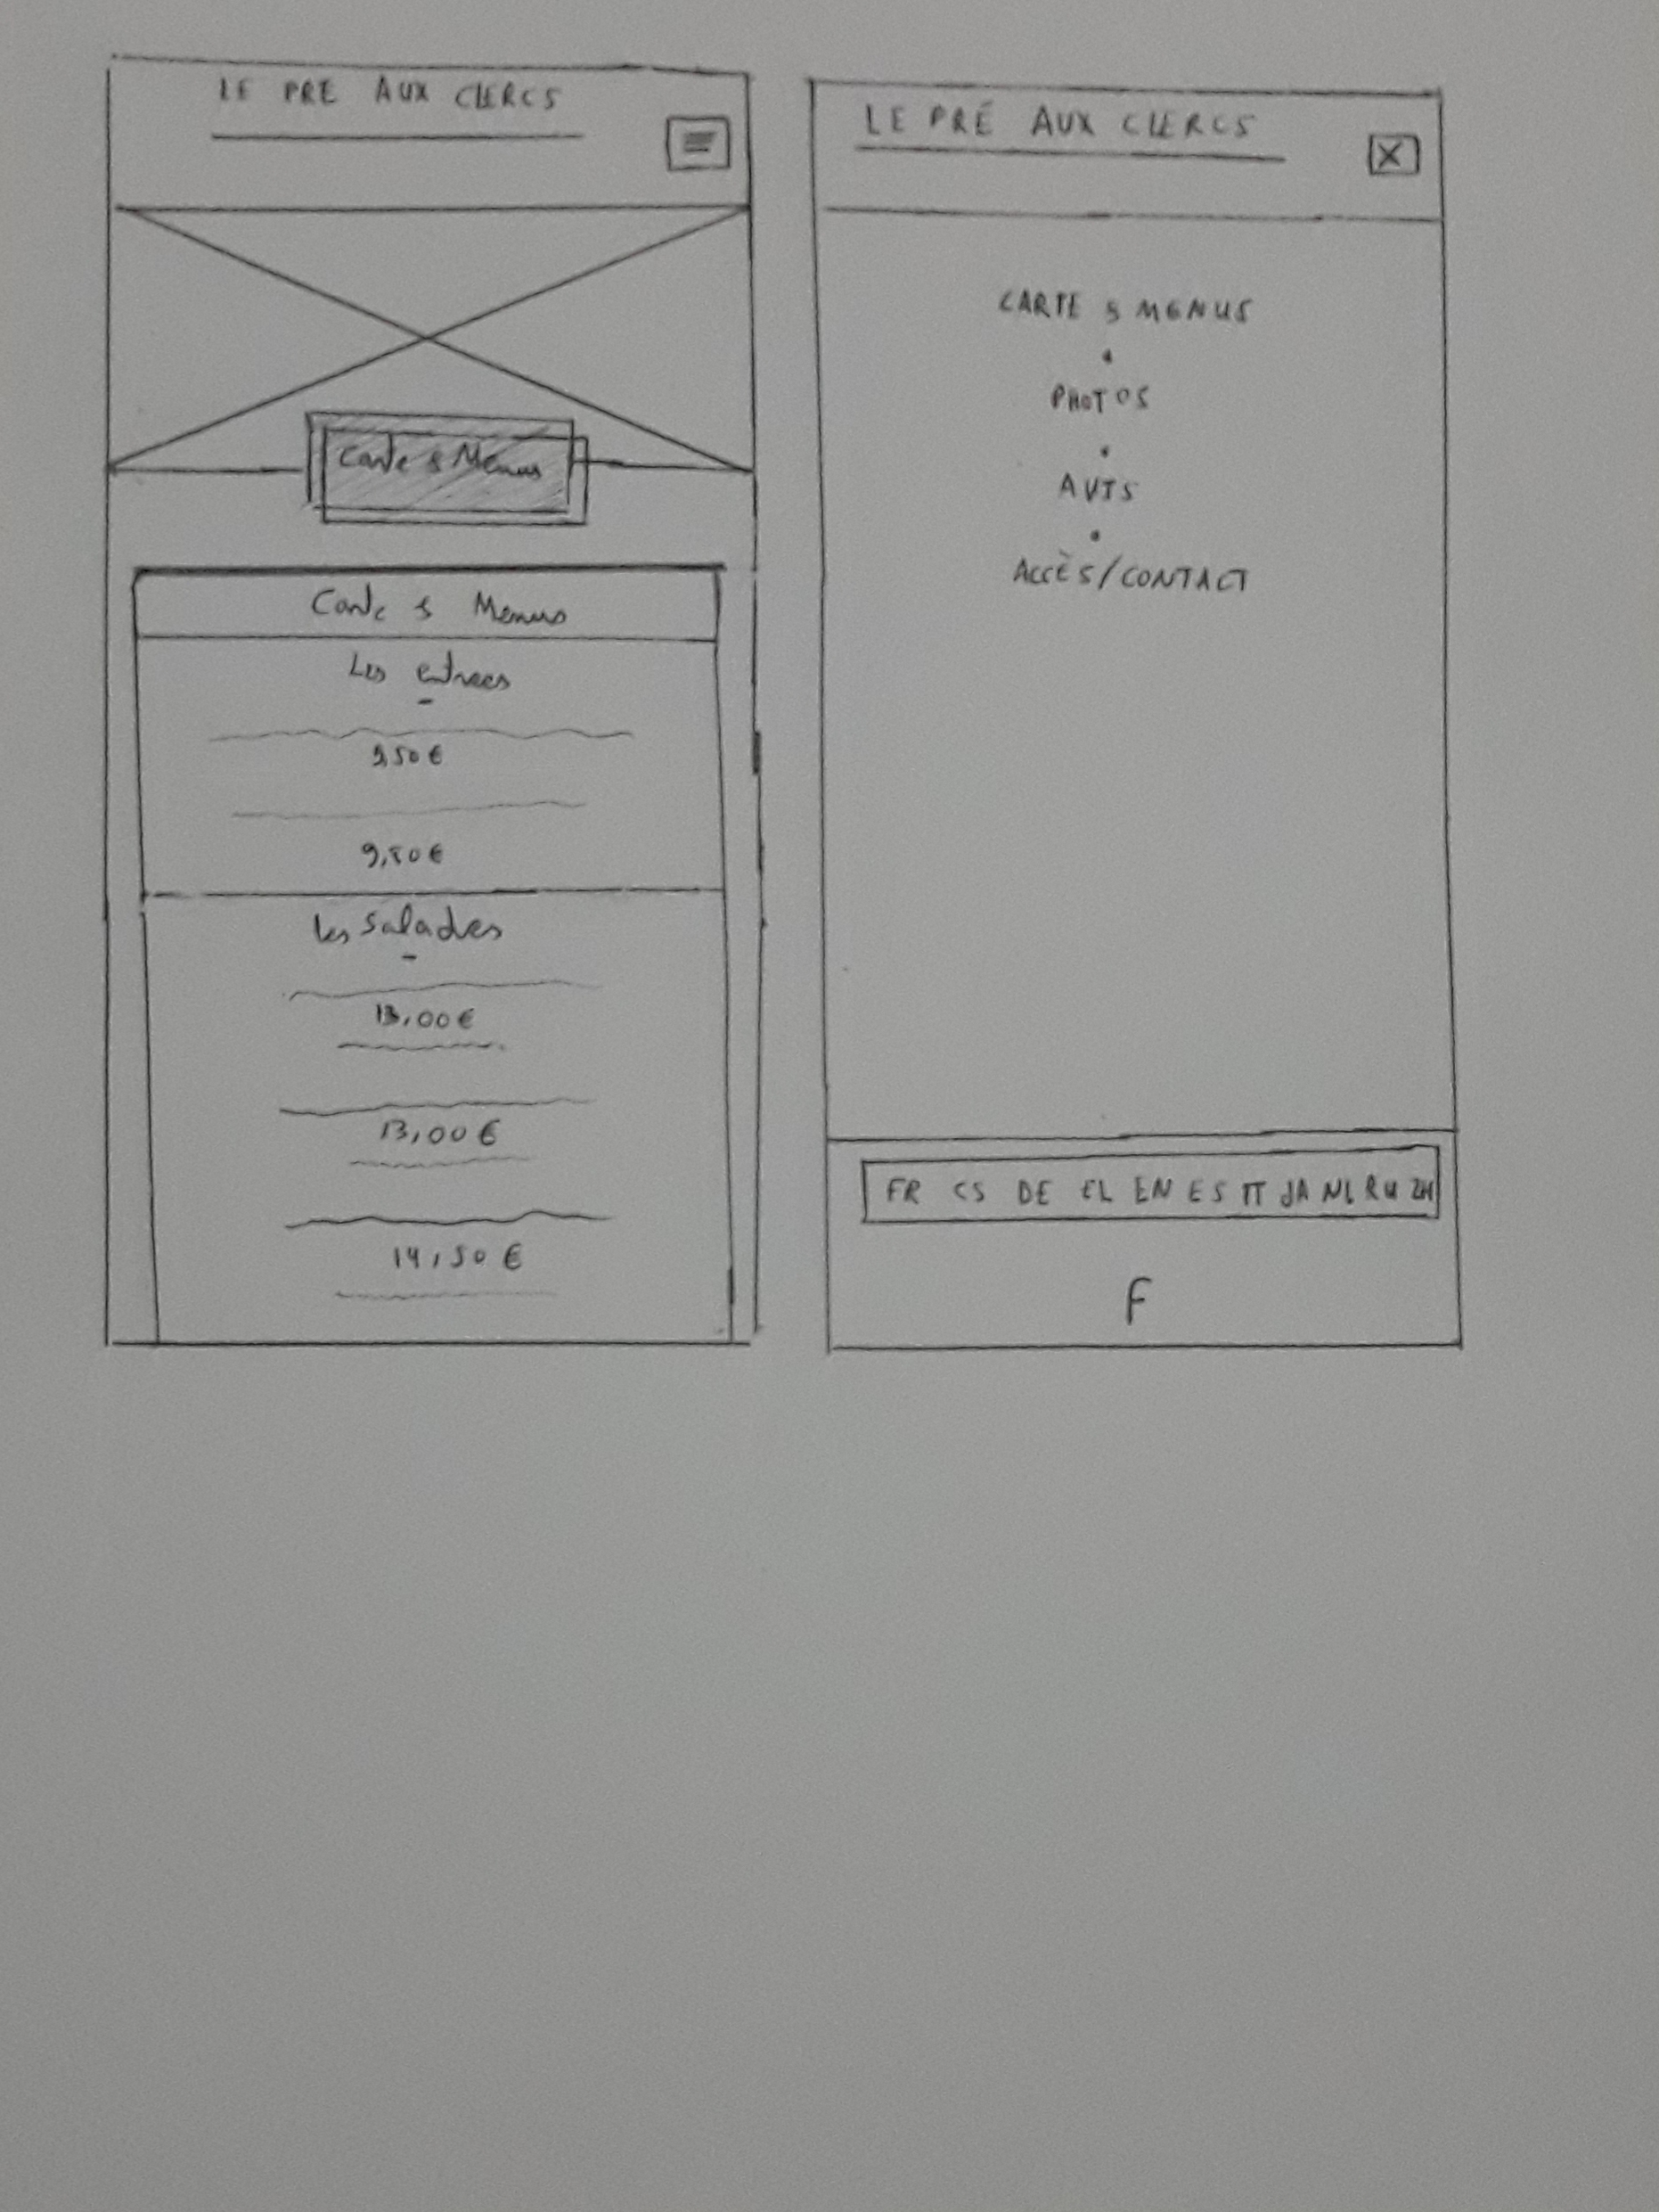 LE PRE AUX CLERCS
Carte & Menus
Carte & Menus
Les entrees
9,50 €
9,50 €
les salades
13,00 €
13,00 €
14,50 €
LE PRÉ AUX CLERCS
CARTE & MENUS
PHOTOS
AVIS
ACCÈS/CONTACT
FR CS DE EL EN ES IT JA NL RU ZH
F